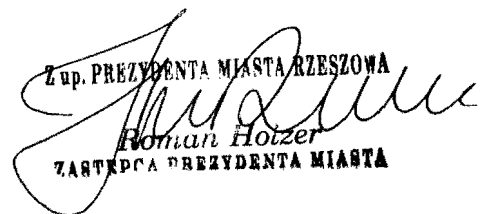 Z up. PREZYDENTA MIASTA RZESZOWA
Roman Holzer
ZASTĘPCA PREZYDENTA MIASTA